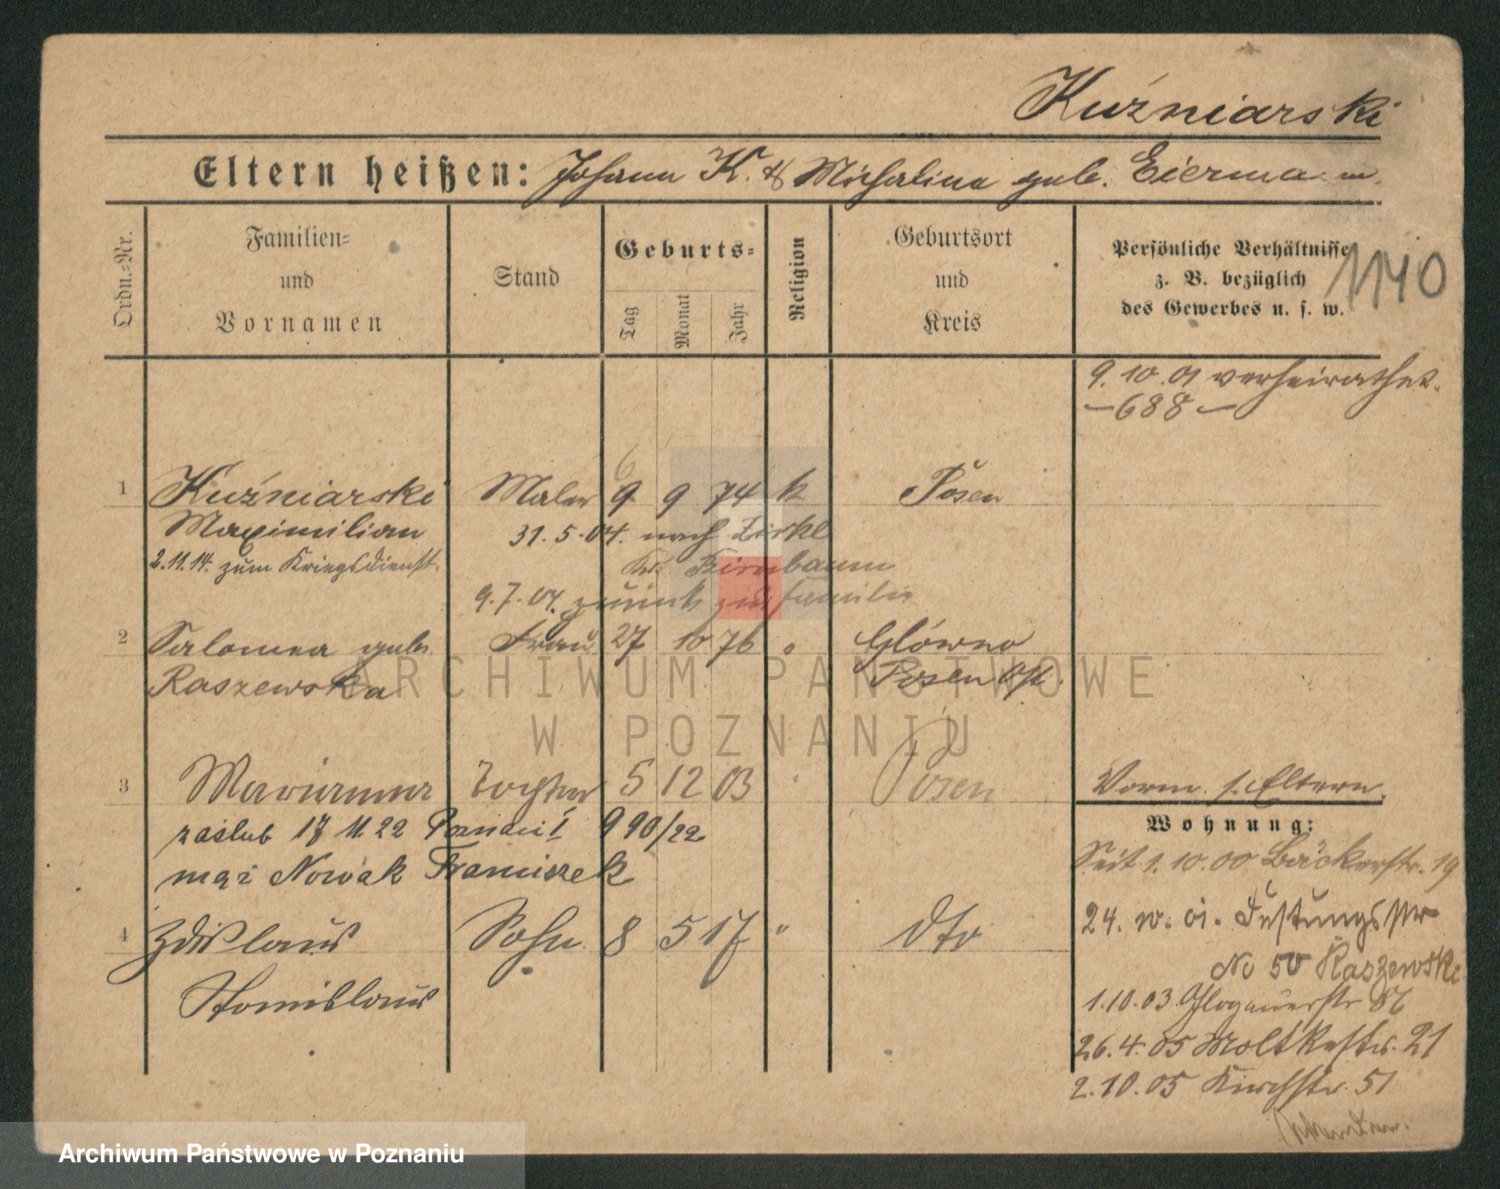 Kuźniarski
Eltern heißen: Johann K. & Michalina geb. Eiermann.
Ordn.-Nr.
Familien- und Vornamen
Stand
Geburts-
Tag Monat Jahr
Religion
Geburtsort und Kreis
Persönliche Verhältnisse
z. B. bezüglich
des Gewerbes u. s. w.
1140
9.10.01 verheirathet.
-688-
6
1 Kuźniarski Maler 9 9 74 k Posen
Maximilian 31.5.04. nach Zirke
2.11.14. zum Kriegsdienst. Kr. Birnbaum
9.7.04. zurück zur Familie
2 Salomea geb. Frau 27 10 76 " Główno
Raszewska Posen Ost.
3 Marianna Tochter 5 12 03 " Posen
zaślub 17 11 22 Poznań I 990/22
mąż Nowak Franciszek
4 Zdislaus Sohn 8 5 17 " dto
Stanislaus
Vorm. s. Eltern.
Wohnung:
Seit 1.10.00 Bäckerstr. 19
24. 10. 01. Festungsstr
No 50 Raszewski
1.10.03 Glogauerstr 86
26.4.05 Moltkestr. 21
2.10.05 Kirchstr. 51
ARCHIWUM PAŃSTWOWE
W POZNANIU
Archiwum Państwowe w Poznaniu